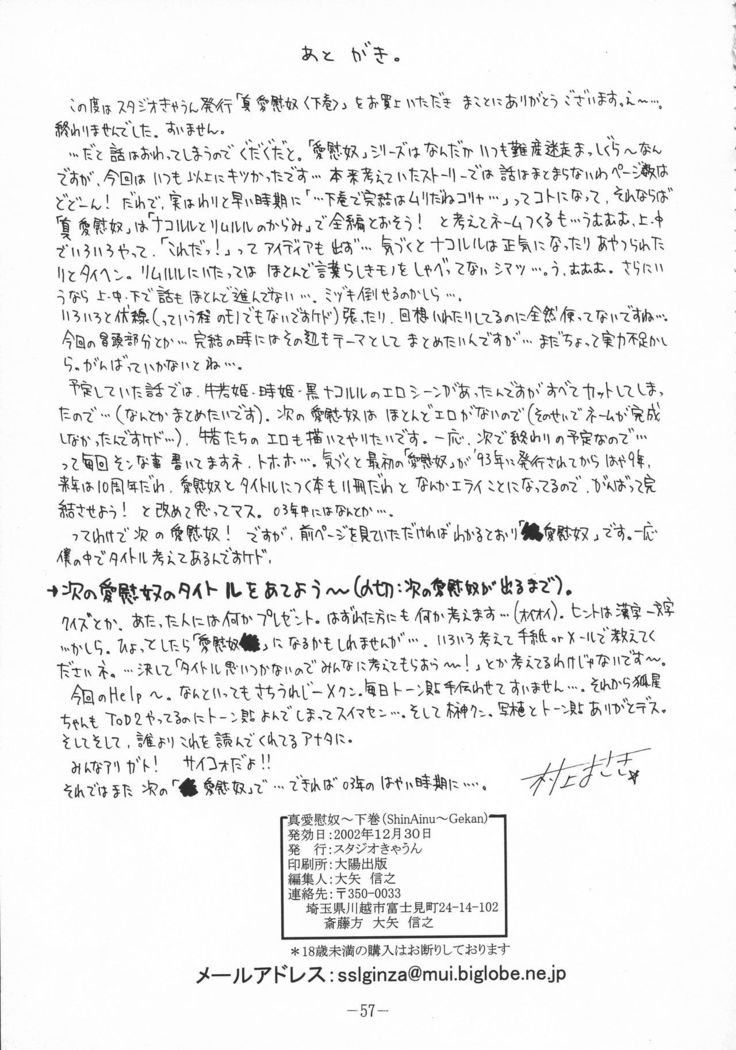 あと がき。
この度はスタジオきゃうん発行「真愛慰奴〈下巻〉」をお買上いただき まことにありがとう ございます。え〜…。
終わりませんでした。すいません。
…だと 話はおわってしまうので ぐだぐだと。「愛慰奴」シリーズは なんだか いつも難産迷走まっしぐら〜なん
ですが、今回は いつも以上にキツかったです… 本来考えていたストーリーでは 話はまとまらないわ ページ数は
どどーん! だわで、実はわりと早い時期に「…下巻で完結はムリだねコリャ…」ってコトになって、それならば
「真愛慰奴」は「ナコルルとリムルルのからみ」で全編とおそう! と考えてネームつくるも…うむむむ、上・中
でいろいろやって、「これだっ!」って アイディアも出ず… 気づくと ナコルルは正気になったり あやつられた
りとタイヘン。リムルルにいたっては ほとんど言葉らしきモノをしゃべってない シマツ…。う、むむむ。さらにい
うなら 上・中・下で話も ほとんど進んでない…。ミヅキ倒せるのかしら…。
いろいろと伏線(っていう程のモノでもないですケド)張ったり、回想いれたりしてるのに全然使ってないですね…。
今回の冒頭部分とか… 完結の時にはその辺もテーマとして まとめたいんですが… まだちょって実力不足かし
ら。がんばっていかないとね…。
予定していた話では、牛若姫・時姫・黒ナコルルのエロシーンがあったんですが すべてカットしてしまっ
たので…(なんとか まとめたいです)。次の愛慰奴は ほとんどエロがないので(そのせいでネームが完成
しなかったんですケド…)、牛若たちの エロも描いてやりたいです。一応、次で終わりの予定なので…
って毎回 そンな事 書いてますネ、トホホ…。気づくと最初の「愛慰奴」が'93年に発行されてから はや9年、
来年は10周年だわ、愛慰奴とタイトルにつく本も11冊だわ と なんかエライことになってるので、がんばって完
結させよう! と改めて思ってマス。03年中にはなんとか…。
ってわけで 次の愛慰奴! ですが、前ページを見ていただければ わかるとおり「 愛慰奴」です。一応
僕の中でタイトル考えてあるんですケド、
→次の愛慰奴のタイトルをあてよう〜(〆切:次の愛慰奴が出るまで)。
クイズとか、あたった人には何かプレゼント。はずれた方にも 何か考えます…(オイオイ)。ヒントは漢字一文字
…かしら。ひょっとしたら「愛慰奴 」になるかもしれませんが…。いろいろ考えて 手紙orメールで教えてく
ださいネ。…決して「タイトル思いつかないのでみんなに考えてもらおう〜!」とか考えてるわけじゃないです〜。
今回のHelp〜。なんといっても さちうれじーXクン。毎日トーン貼手伝わせて すいません…。それから 狐星
ちゃんも ToD2やってるのにトーン貼 よんでしまってスイマセン…。そして 榊クン。写植とトーン貼 ありがとデス。
そしてそして、誰よりこれを読んでくれてるアナタに。
みんなアリガト! サイコォだよ!!
それではまた 次の「 愛慰奴」で…できれば 03年の はやい時期に…。
村上まさき
真愛慰奴〜下巻(ShinAinu〜Gekan)
発効日:2002年12月30日
発 行:スタジオきゃうん
印刷所:大陽出版
編集人:大矢 信之
連絡先:〒350-0033
埼玉県川越市富士見町24-14-102
斎藤方 大矢 信之
*18歳未満の購入はお断りしております
メールアドレス:sslginza@mui.biglobe.ne.jp
—57—